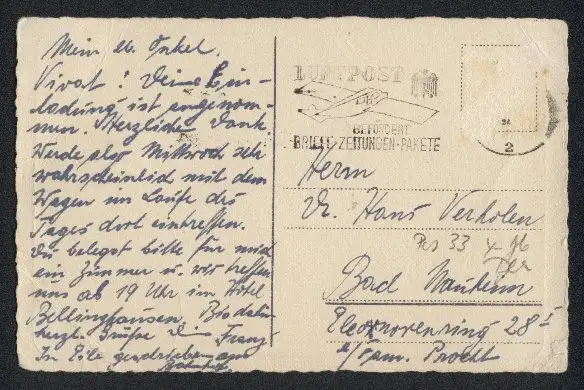 Mein lb. Onkel.
Vivat! Deine Ein-
ladung ist angenom-
men. Herzlichen Dank.
Werde also Mittwoch
wahrscheinlich mit dem
Wagen im Laufe des
Tages dort eintreffen.
Du belegst bitte für mich
ein Zimmer u. wir treffen
uns ab 19 Uhr im Hotel
Bellinghausen. Bis dahin
herzl. Grüße Dein Franz
In Eile geschrieben am
Bahnhof.
LUFTPOST
BEFÖRDERT
BRIEFE-ZEITUNGEN-PAKETE
2
Herrn
Dr. Hans Verholen
Bad Nauheim
Eleonorenring 28